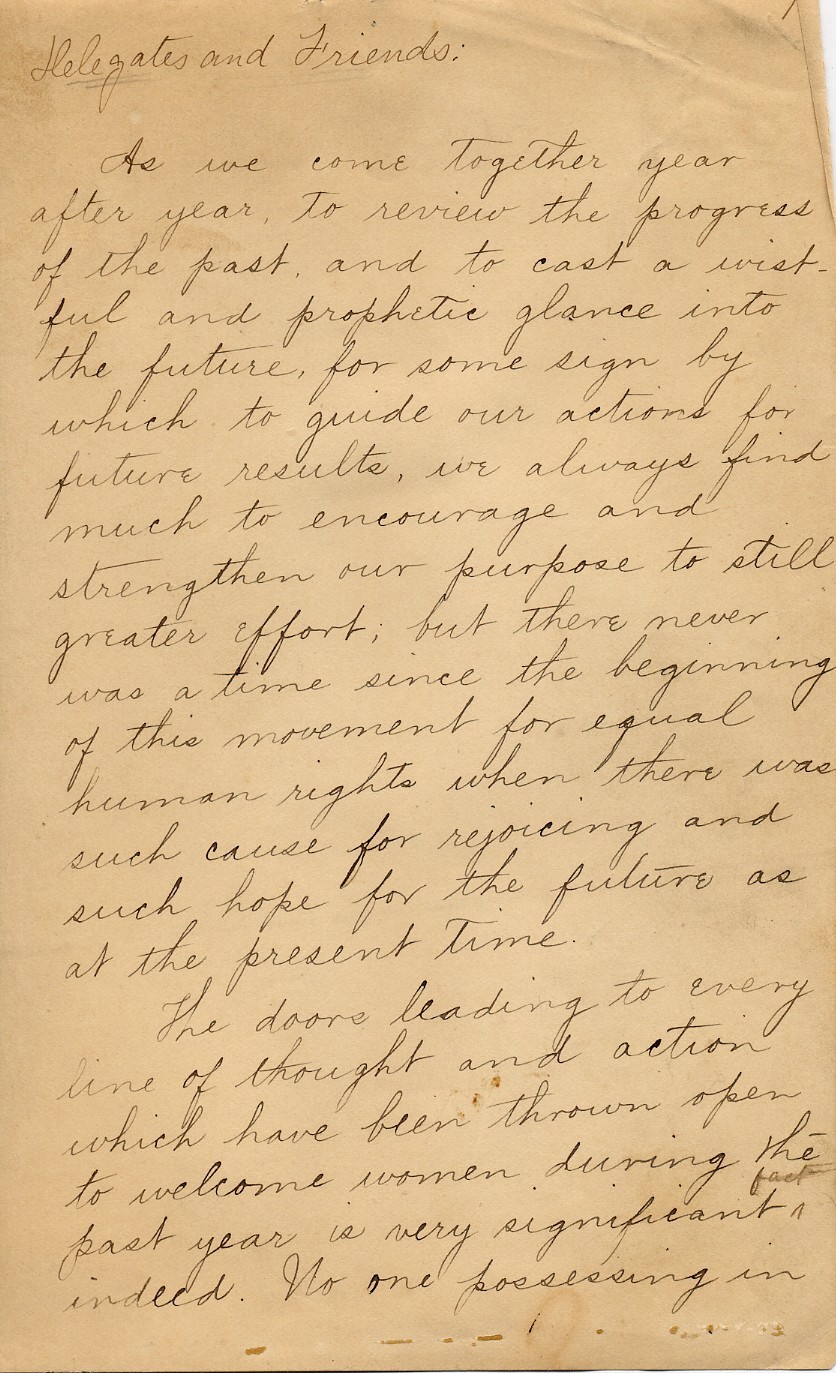 1
Delegates and Friends:
As we come together year
after year, to review the progress
of the past, and to cast a wist-
ful and prophetic glance into
the future, for some sign by
which to guide our actions for
future results, we always find
much to encourage and
strengthen our purpose to still
greater effort; but there never
was a time since the beginning
of this movement for equal
human rights when there was
such cause for rejoicing and
such hope for the future as
at the present time.
The doors leading to every
line of thought and action
which have been thrown open
to welcome women during the
fact
past year is very significant
indeed. No one possessing in